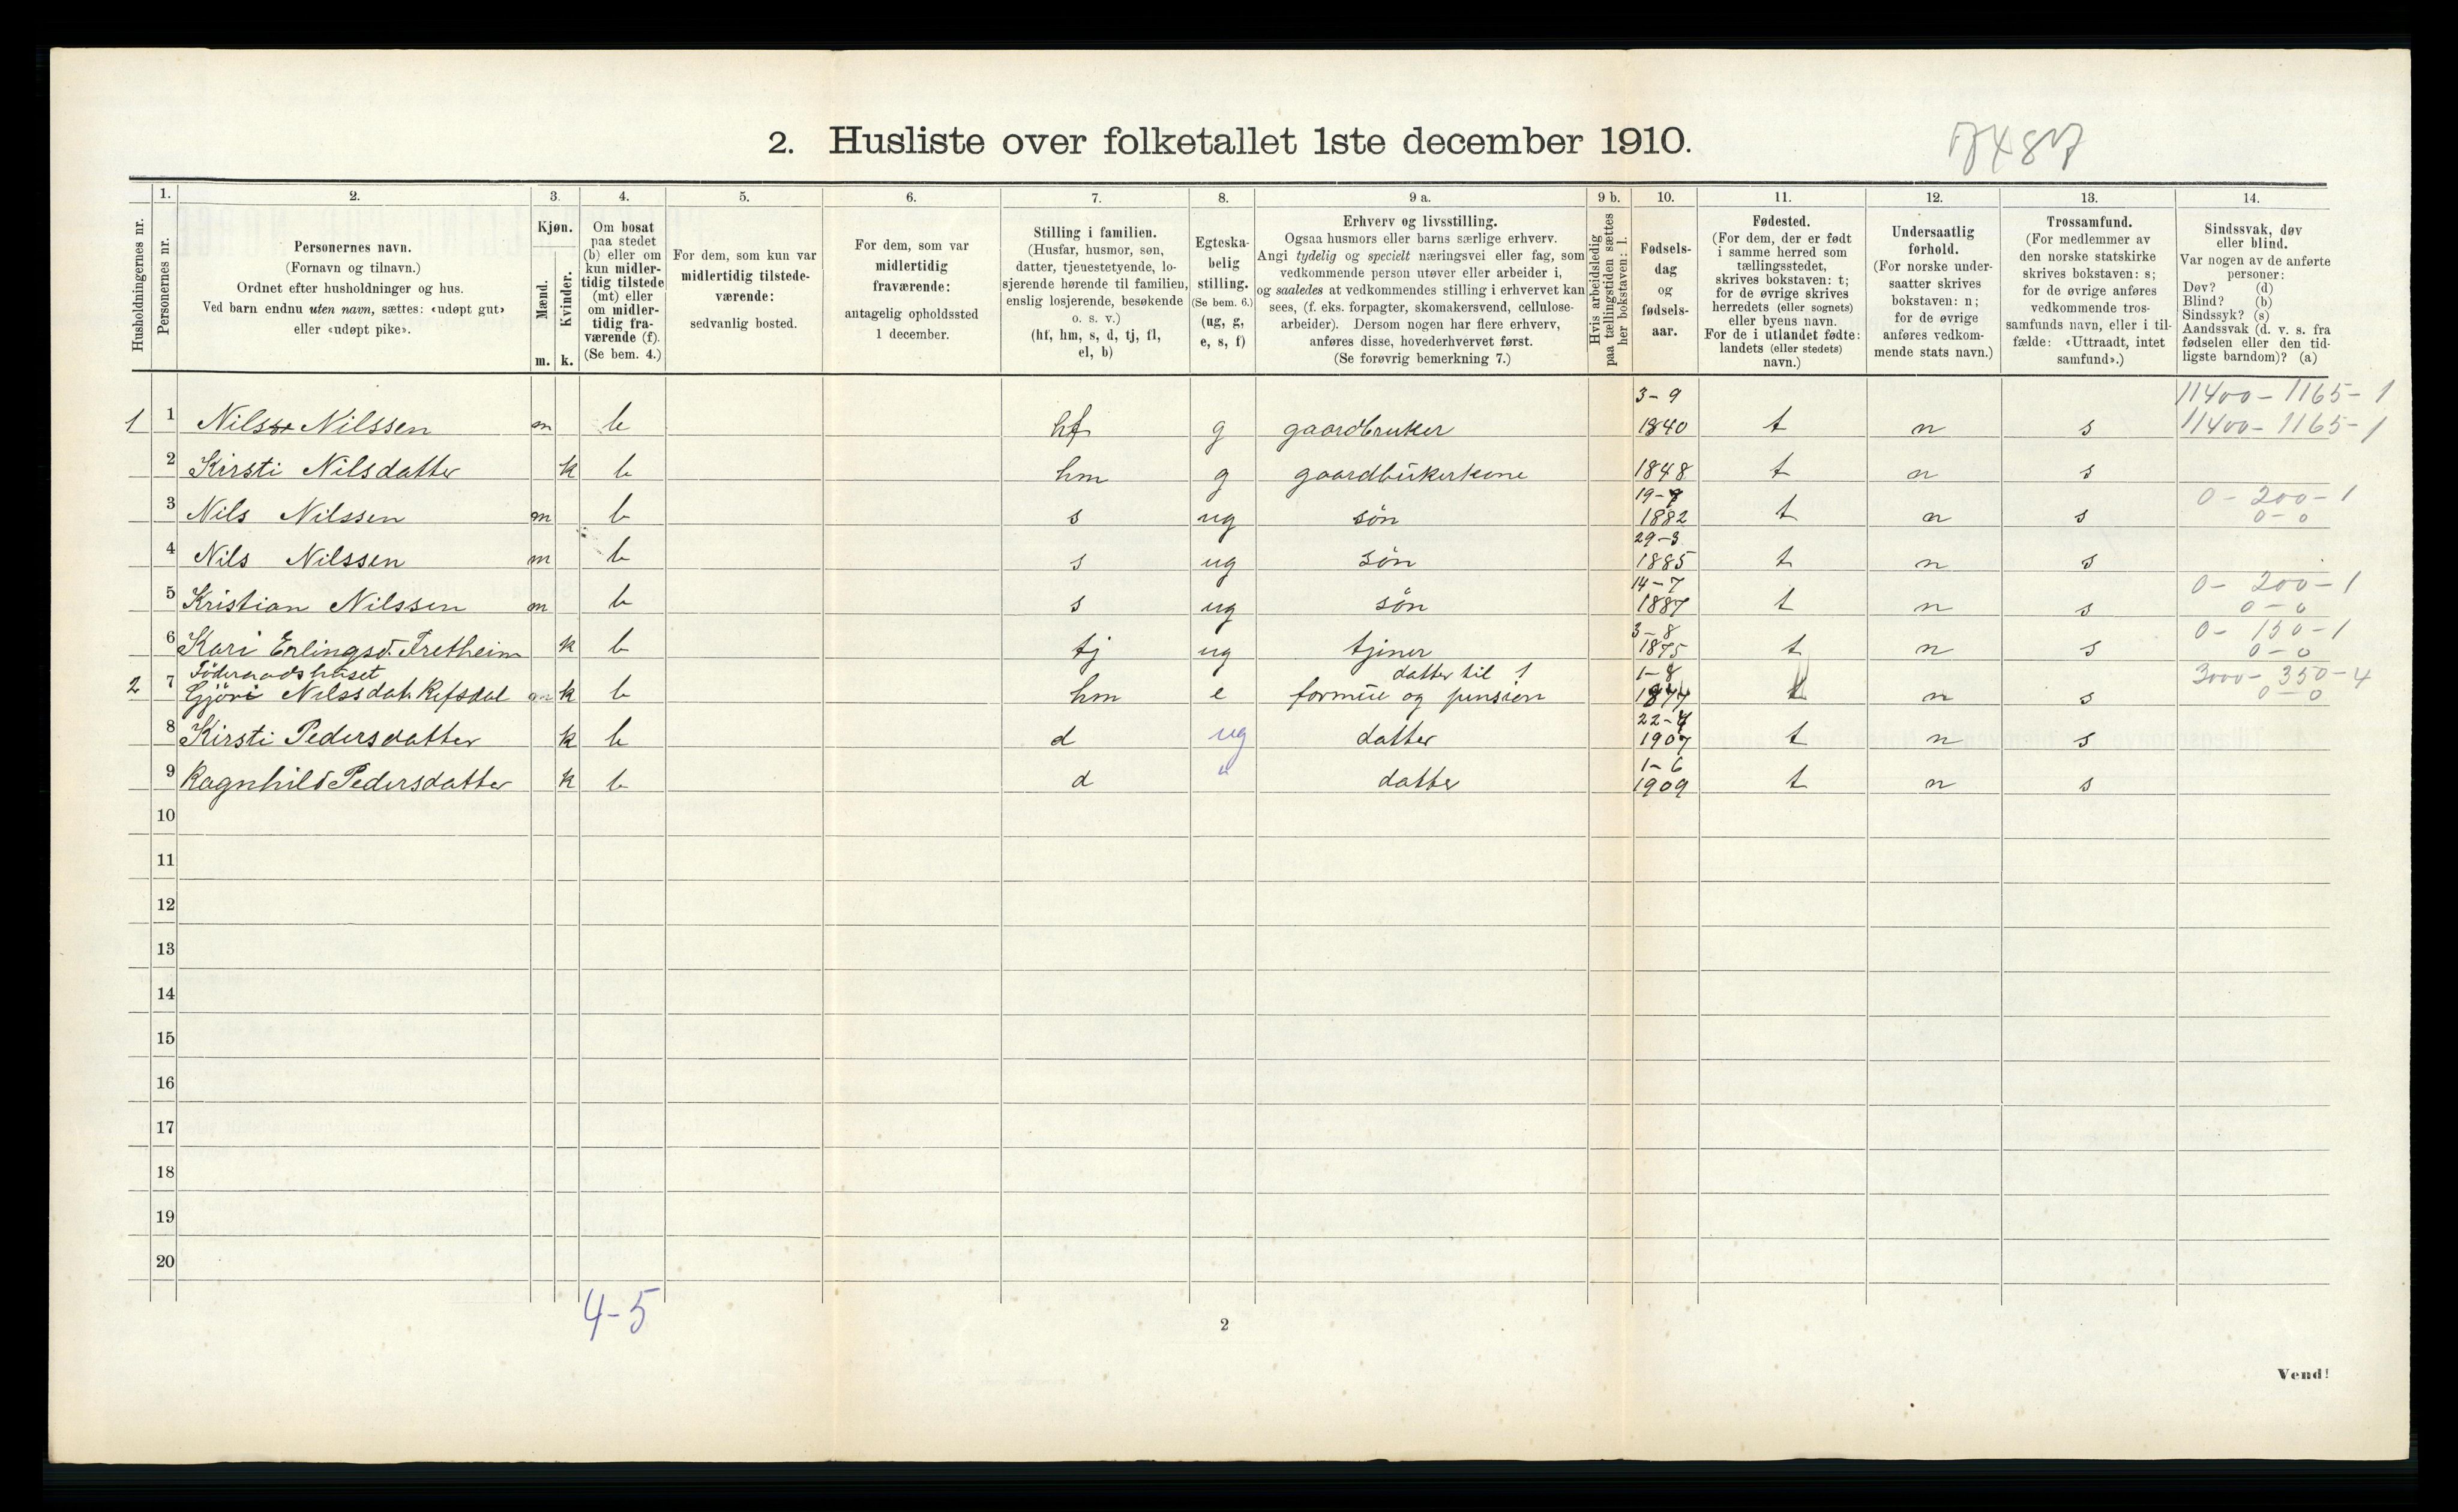 2. Husliste over folketallet 1ste december 1910.
7487
Husholdningernes nr.
1.
Personernes nr.
2.
Personernes navn.
(Fornavn og tilnavn.)
Ordnet efter husholdninger og hus.
Ved barn endnu uten navn, sættes: «udøpt gut»
eller «udøpt pike».
3.
Kjøn.
Mænd.
Kvinder.
m. k.
4.
Om bosat
paa stedet
(b) eller om
kun midler-
tidig tilstede
(mt) eller
om midler-
tidig fra-
værende (f).
(Se bem. 4.)
5.
For dem, som kun var
midlertidig tilstede-
værende:
sedvanlig bosted.
6.
For dem, som var
midlertidig
fraværende:
antagelig opholdssted
1 december.
7.
Stilling i familien.
(Husfar, husmor, søn,
datter, tjenestetyende, lo-
sjerende hørende til familien,
enslig losjerende, besøkende
o. s. v.)
(hf, hm, s, d, tj, fl,
el, b)
8.
Egteska-
belig
stilling.
(Se bem. 6.)
(ug, g,
e, s, f)
9 a.
Erhverv og livsstilling.
Ogsaa husmors eller barns særlige erhverv.
Angi tydelig og specielt næringsvei eller fag, som
vedkommende person utøver eller arbeider i,
og saaledes at vedkommendes stilling i erhvervet kan
sees, (f. eks. forpagter, skomakersvend, cellulose-
arbeider). Dersom nogen har flere erhverv,
anføres disse, hovederhvervet først.
(Se forøvrig bemerkning 7.)
9 b.
Hvis arbeidsledig
paa tællingstiden sættes
her bokstaven: l.
10.
Fødsels-
dag
og
fødsels-
aar.
11.
Fødested.
(For dem, der er født
i samme herred som
tællingsstedet,
skrives bokstaven: t;
for de øvrige skrives
herredets (eller sognets)
eller byens navn.
For de i utlandet fødte:
landets (eller stedets)
navn.)
12.
Undersaatlig
forhold.
(For norske under-
saatter skrives
bokstaven: n;
for de øvrige
anføres vedkom-
mende stats navn.)
13.
Trossamfund.
(For medlemmer av
den norske statskirke
skrives bokstaven: s;
for de øvrige anføres
vedkommende tros-
samfunds navn, eller i til-
fælde: «Uttraadt, intet
samfund».)
14.
Sindssvak, døv
eller blind.
Var nogen av de anførte
personer:
Døv? (d)
Blind? (b)
Sindssyk? (s)
Aandssvak (d. v. s. fra
fødselen eller den tid-
ligste barndom)? (a)
3-9 11400-1165-1
1 1 Nils Nilssen m b hf g gaardbruker 1840 t n s 11400-1165-1
2 Kirsti Nilsdatter k b hm g gaardbükerkone 1848 t n s
19- 0-200-1
3 Nils Nilssen m b s ug søn 1882 t n s 0-0
29-3
4 Nils Nilssen m b s ug søn 1885 t n s
14-7 0-200-1
5 Kristian Nilssen m b s ug søn 1887 t n s 0-0
3-8 0-150-1
6 Kari Erlingsd. Fretheim k b tj ug tjener 1875 t n s 0-0
Föderaadshuset datter til 1 1-8 3000-350-4
2 7 Gjöri Nilssdatr Refsdal k b hm e formüe og pension t n s 0-0
22-
8 Kirsti Pedersdatter k b d ug datter 1907 t n s
1-6
9 Ragnhild Pedersdatter k b d " datter 1909 t n s
10
11
12
13
14
15
16
17
18
19
20
4-5
2
Vend!